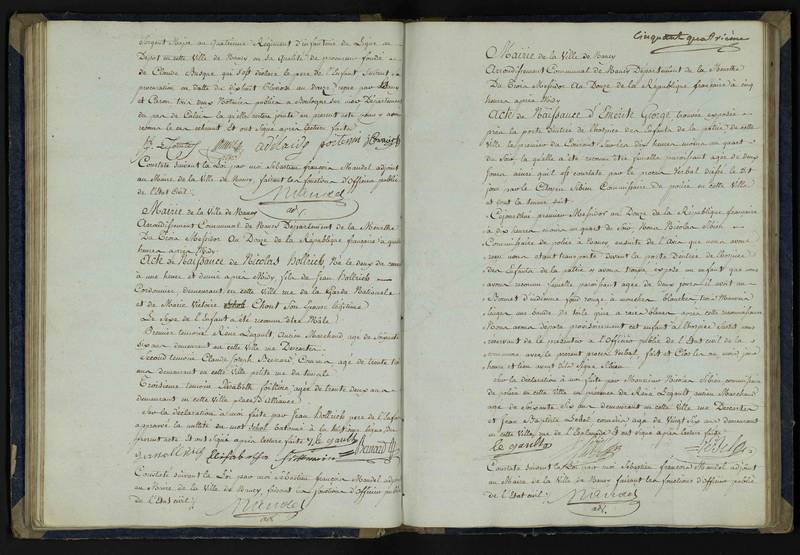 Sergent Major au Quatrieme Régiment d'infanterie de Ligne en
Depot en cette Ville de Nancy en Sa qualité de procureur fondé
de Claude Basque qui s'est declaré le pere de l'Enfant Suivant
procuration en datte du
et Caron tous deux Notaires publics a Boulogne sur mer Departement
du pas de Calais la quelle restera jointe au present acte pour y avoir
recours le cas echeant et ont Signé après lecture faite
adelaide
Constaté Suivant la Loi par moi Sébastien françois Mandel adjoint
au Maire de la Ville de Nancy, faisant les fonctions d'Officier public
de l'Etat Civil
Mandel
adj.
Mairie de la Ville de Nancy
Arrondissement Communal de Nancy Département de la Meurthe
Du Trois Messidor An Douze de la République française a quatre
heures après Midy
Acte de Naissance de Nicolas Hollrich, Né le deux du courant
a une heure et demie après Midy, fils de Jean Hollrich
Cordonnier, demeurant en cette Ville rue de la Garde Nationale
et de Marie Victoire Chont Son Epouse légitime
Le Sexe de l'Enfant a été reconnu être Mâle
Premier temoin, René Legault, Ancien Marchand agé de Soixante
six ans demeurant en cette Ville rue Descartes
Second temoin Claude Joseph Bernard, Ecrivain agé de trente trois
ans demeurant en cette Ville petite rue du
Troisieme temoin Elisabeth agée de trente deux ans
demeurant en cette Ville place d'Alliance
Sur la déclaration à moi faite par Jean Hollrich pere de l'Enfant
approuvé la nullité du mot raturé à la huitieme ligne du
présent acte Et ont signé après lecture faite le gault
Bernard
Constaté Suivant la Loi par moi Sébastien françois Mandel adjoint
au Maire de la Ville de Nancy, faisant les fonctions d'Officier public
de l'Etat civil
Mandel
adj.
Cinquante quatrieme
Mairie de la Ville de Nancy
Arrondissement Communal de Nancy Département de la Meurthe
Du Trois Messidor An Douze de la République française à cinq
heures après Midy
Acte de Naissance D'Emérite George, trouvée exposée
près la porte d'entrée de l'hospice des Enfants de la patrie de cette
Ville le premier du Courant Sur les dix heures moins un quart
du Soir, la quelle a été reconnue être femelle paroissant agée de deux
Jours ainsi qu'il est constaté par le procès Verbal dressé le dit
jour par le Citoyen Commissaire de police en cette Ville
et dont la teneur suit
Cejourdhui premier Messidor an Douze de la République française
à dix heures moins un quart du Soir, Nous Nicolas
Commissaire de police à Nancy, ensuite de l'avis que nous avons
reçu nous etant transporté devant la porte d'entrée de l'hospice
des Enfants de la patrie y avons trouvé exposé un enfant que nous
avons reconnu femelle paroissant agée de deux jours
Bonnet d'indienne fond rouge à mouches blanches, un Mouchoir
léger, une bande de toile après cette reconnoissance
Nous avons déposé provisoirement cet enfant à l'hospice Sauf
à le présenter à l'Officier public de l'Etat civil de la
commune avec le présent procès verbal, fait et Clos les an, mois, jour
heure et lieu avant dits Signé
Sur la déclaration à moi faite par Monsieur Nicolas commissaire
de police en cette Ville en présence de René Legault ancien Marchand
agé de Soixante Six ans demeurant en cette Ville rue Descartes
et Jean Baptiste agé de Vingt Six ans demeurant
en cette Ville, rue de l'Esplanade Et ont signé après lecture faite
le gault
Constaté Suivant la Loi par moi Sébastien françois Mandel adjoint
au Maire de la Ville de Nancy faisant les fonctions d'Officier public
de l'Etat civil
Mandel
adj.